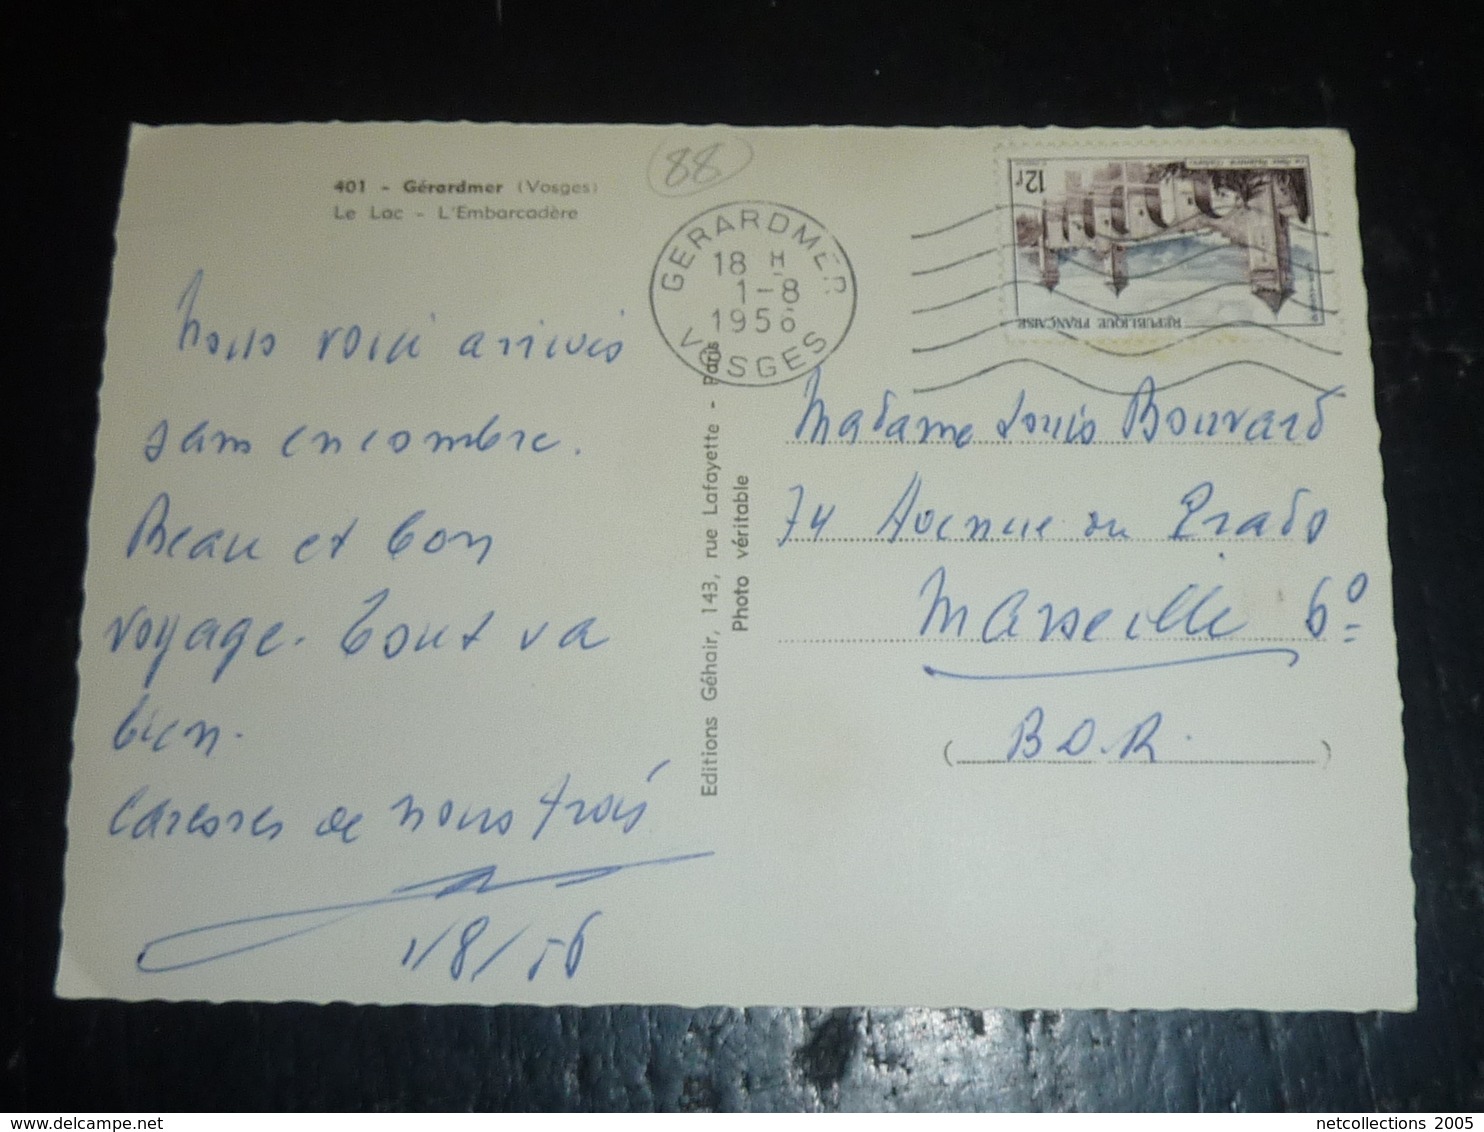 401 - Gérardmer (Vosges)
Le Lac - L'Embarcadère
88
GERARDMER
18 H
1-8
1956
VOSGES
12f
REPUBLIQUE FRANÇAISE
Nous voici arrivés
sans encombre.
Beau et bon
voyage. Tout va
bien.
Caresses de nous trois
1/8/56
Editions Géhair, 143, rue Lafayette - Paris
Photo véritable
Madame Louis Bouvard
74 Avenue du Prado
Marseille 6º
(B.D.R.)
netcollections 2005